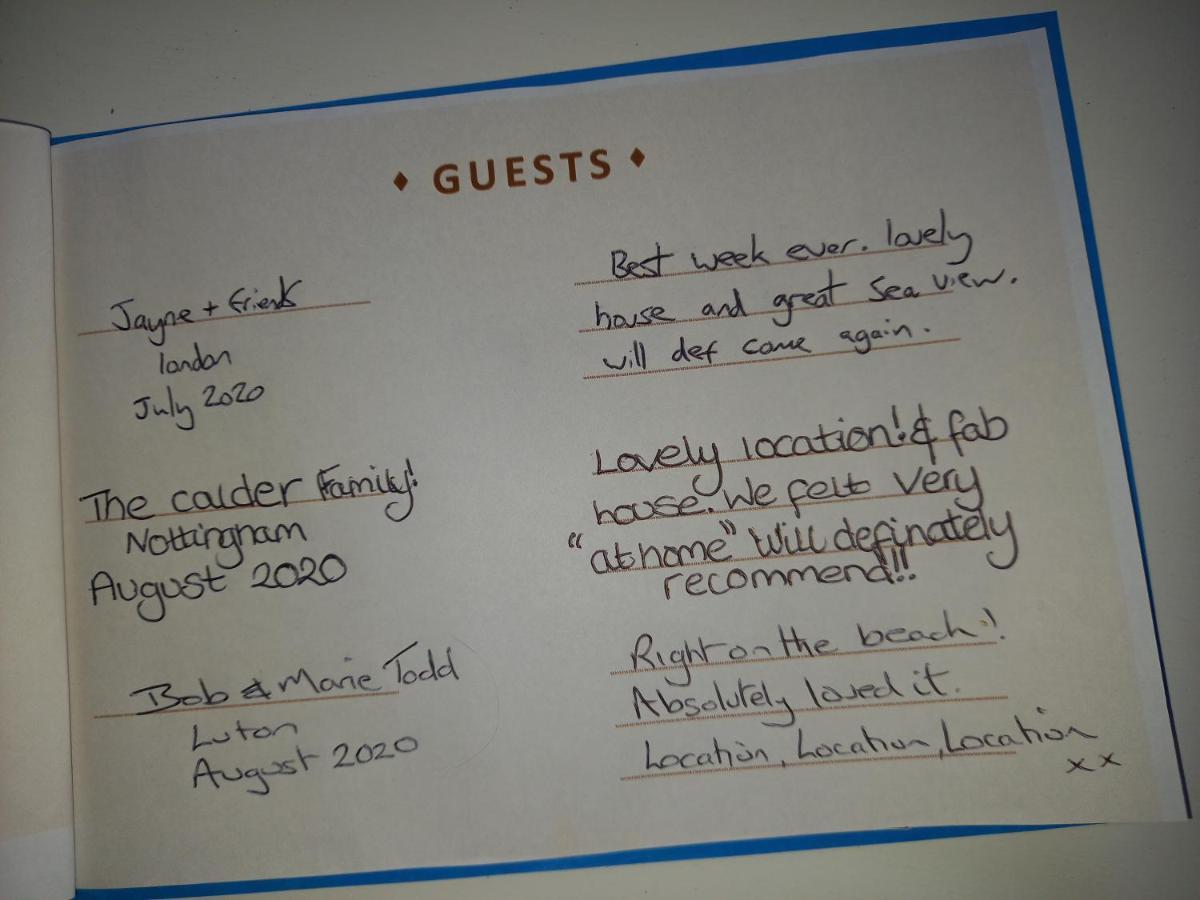 ♦ GUESTS ♦
Jayne + friends
london
July 2020
Best week ever. lovely
house and great sea view.
will def come again.
The calder Family!
Nottingham
August 2020
Lovely location! & fab
house. We felt very
"at home" Will definately
recommend!!
Bob & Marie Todd
Luton
August 2020
Right on the beach!
Absolutely loved it.
Location, Location, Location
x x